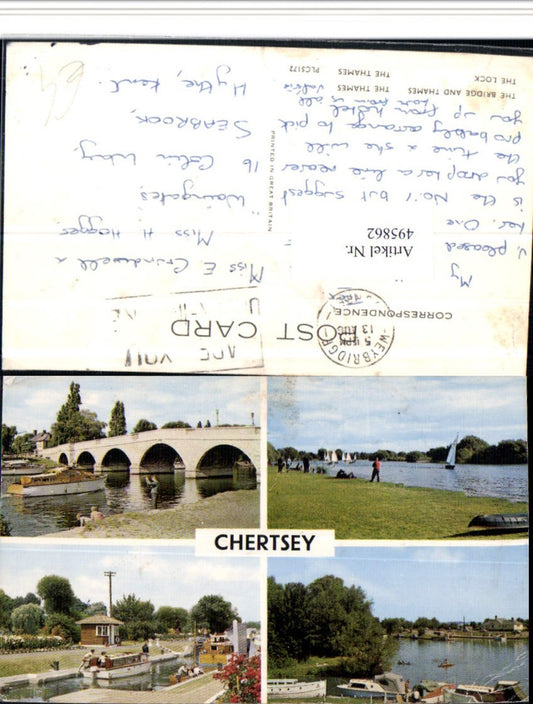 THE BRIDGE AND THAMES THE THAMES
THE LOCK PLC5172
PRINTED IN GREAT BRITAIN
POST CARD
CORRESPONDENCE
WEYBRIDGE
5 PM
13 AUG
Artikel Nr.
495862
My
pleased
her. One
is the No. 1 but suggest
you drop her a line nearer
the time & she will
probably arrange to pick
you up from
from all
Miss E
Miss H
16 Colin Way
SEABROOK,
Hythe, Kent.
CHERTSEY